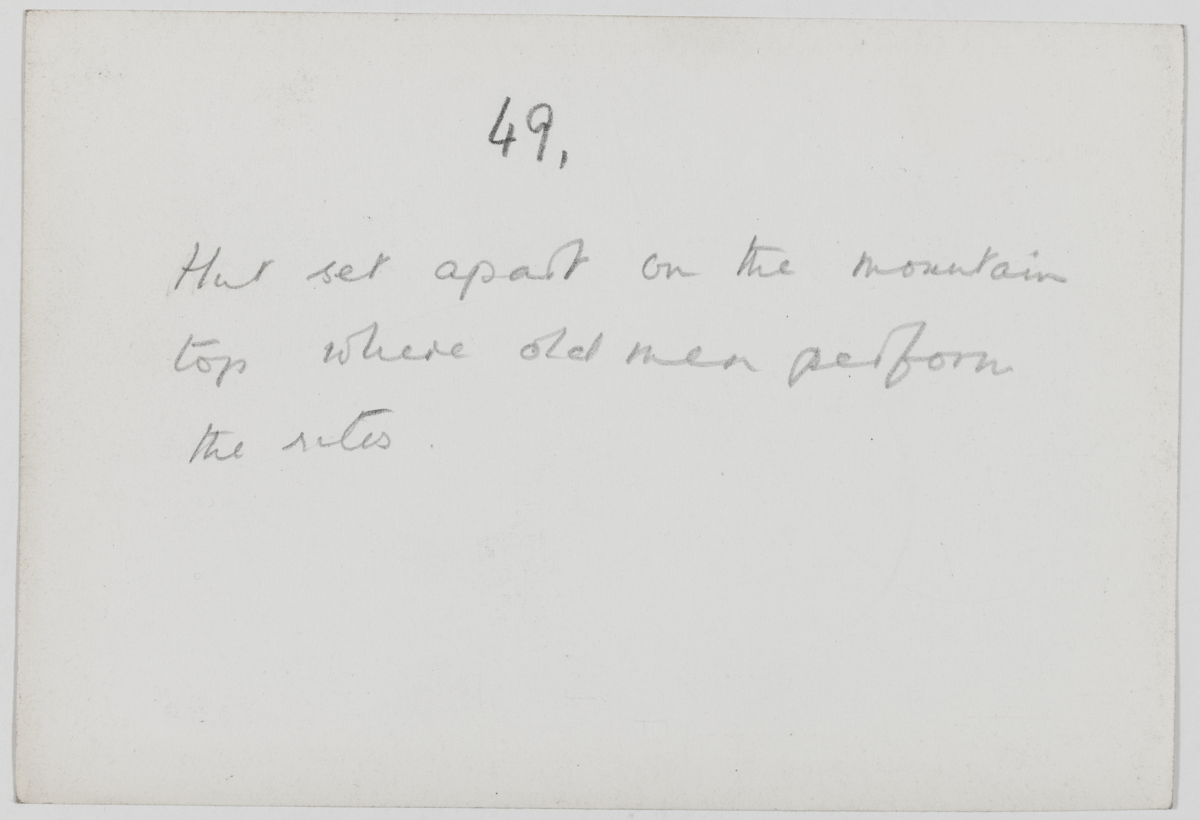 49,
Hut set apart on the mountain
top where old men perform
the rites.